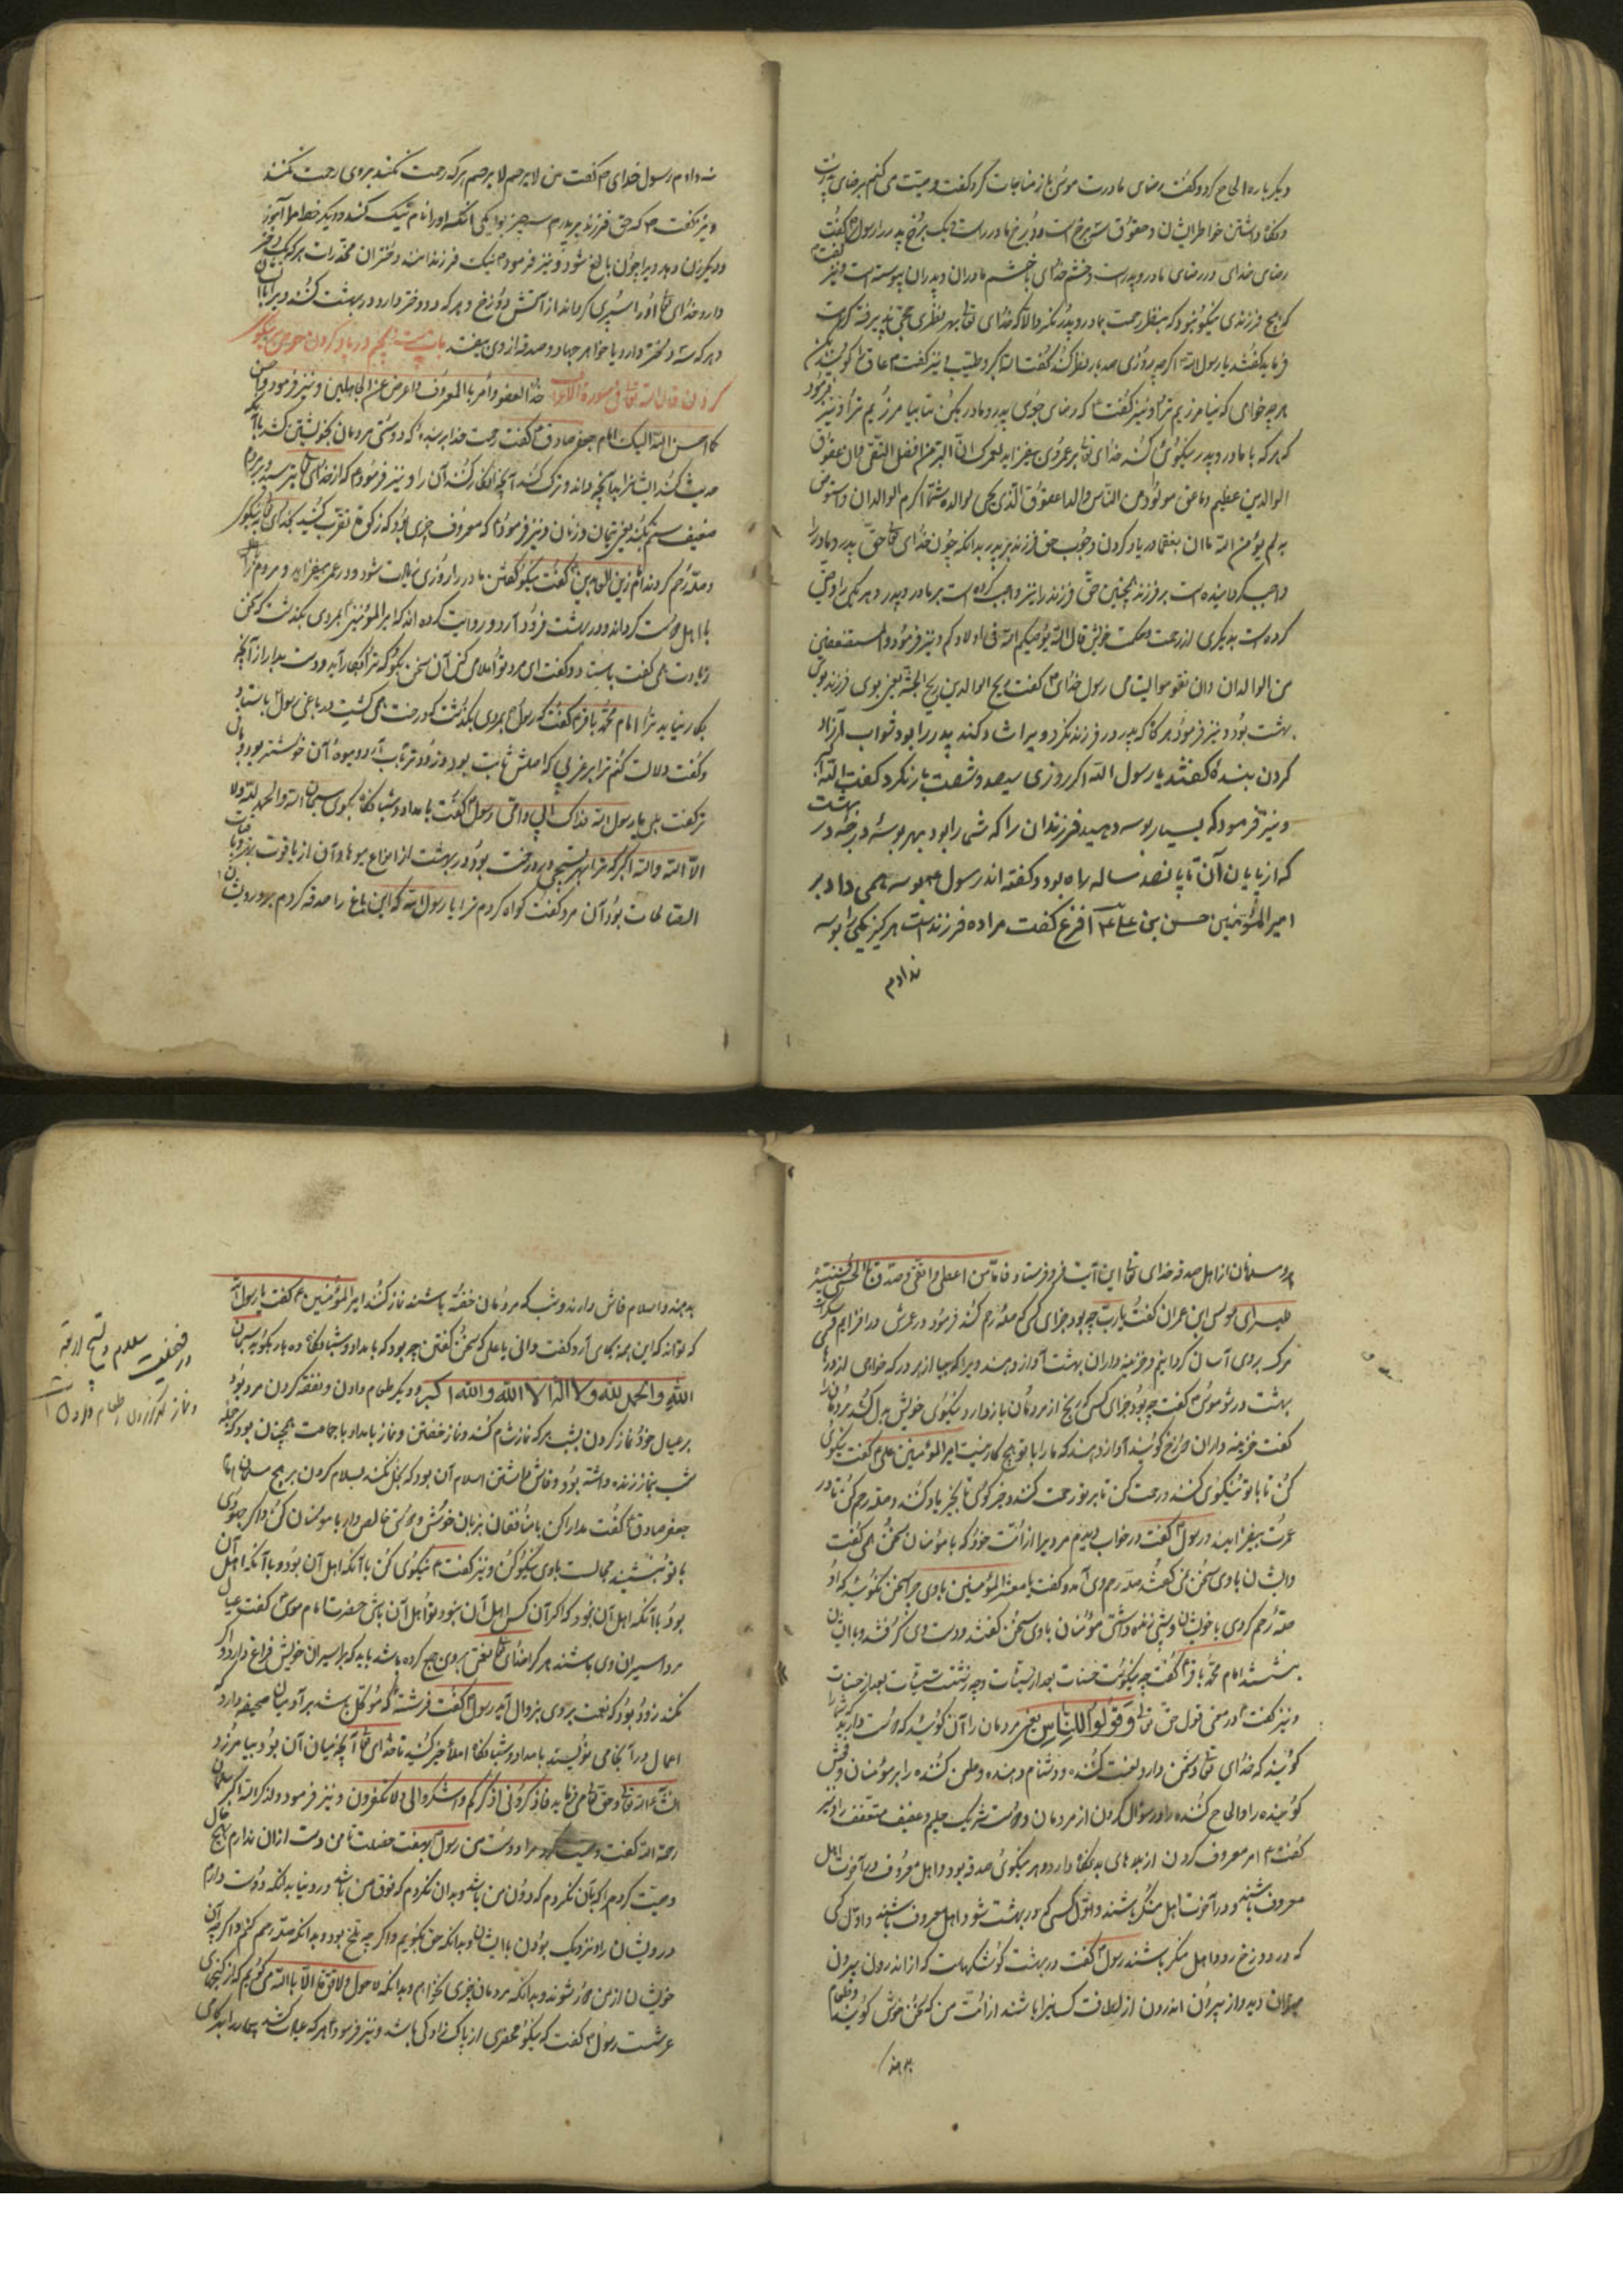 دیگر باره الحاح کرد و گفت رضای مادرت موسی باز مناجات کرد و گفت وصیت می کنم برضای پدرت
و نگاه داشتن خواطر ایشان و حقوق سه برخ است دو برخ مادر راست و یک برخ پدر را رسول گفت
رضای خدای در رضای مادر و پدرست و خشم خدای با خشم مادران و پدران پیوسته است و نیز گفت
که هیچ فرزندی نیکو نبود که بنظر رحمت بمادر و پدر نگرد الا که خدای تعالی بهر نظری حجی پذیرفته کرامت
فرماید گفتند یا رسول الله اگرچه روزی صد بار نظر کند گفت الله اکبر و طیب و نیز گفت عاق را گویند بکن
هرچه خواهی که نیامرزیم ترا و نیز گفت که رضای جوی پدر و مادر بکن تا بیامرزیم ترا و نیز فرمود
که هر که با مادر و پدر نیکوئی کند خدای تعالی بر عمر وی بیفزاید
الوالدین عظیم
به لم یؤمن الله در یاد کردن وجوب حق فرزند بر پدر بدانکه چون خدای تعالی حق پدر و مادر را
واجب گردانیده است بر فرزند همچنین حق فرزند را نیز واجب کرده است بر مادر و پدر و هر یکی را وصی
کرده است بدیگری از رحمت و حکمت خویش قال الله یوصیکم الله فی اولادکم و نیز فرمود و المستضعفین
من الولدان و ان تقوموا لیتامی رسول خدای گفت ریح الوالدین ریح الجنة یعنی بوی فرزند بوی
بهشت بود و نیز فرمود هر گاه که پدر در فرزند نگرد و ویرا شاد کند پدر را بود ثواب آزاد
کردن بنده گفتند یا رسول الله اگر روزی سیصد و شصت بار نگرد گفت الله اکبر
و نیز فرمود که بسیار بوسه دهید فرزندان را که شما را بود بهر بوسه درجه در بهشت
که از پایان آن تا پانصد ساله راه بود و گفته اند رسول بوسه همی داد بر
امیرالمؤمنین حسن بن علی اقرع گفت مرا ده فرزندست هرگز یکی را بوسه
ندادم
نداده ام رسول خدای گفت من لا یرحم لا یرحم هر که رحمت نکند بر وی رحمت نکنند
و نیز گفت که حق فرزند بر پدرم سه چیز بود یکی آنکه او را نام نیک کند و دیگر خط املا آموزد
و دیگر زن دهد ویرا چون بالغ شود و نیز فرمود نیک فرزندانند دختران مخدرات هر که یک دختر
دارد خدای تعالی او را سپری گرداند از آتش دوزخ و هر که دو دختر دارد در بهشت کنند ویرا بدان
و هر که سه دختر دارد یا خواهر جهاد و صدقه از وی بیفتد باب بیست و پنجم در یاد کردن خوی نیکو
کردن قال الله تعالی فی سورة الاعراف خذ العفو و أمر بالمعروف و اعرض عن الجاهلین و نیز فرمود و احسن
کما احسن الله الیک امام جعفر صادق گفت رحمت خدا بر بنده که دوستی مردمان بخویشتن کشد بآنکه
حدیث کند ایشانرا بآنچه دانند و ترک کند آنچه انکار کنند آن را و نیز فرمود که از خدای تعالی بترسید و بر دو
ضعیف ستم نکنید یعنی یتیمان و زنان و نیز فرمود که معروف چیزی بود که زکوة تقرب کنید بخدای تعالی بنیکوکاری
وصله رحم کردند امام زین العابدین گفت نیکو گفتن مادر را روزی زیادت شود و در عمر بیفزاید و مردم را
با اهل دوست گرداند و در بهشت فرود آرد و روایت کرده اند که امیرالمؤمنین بمردی بگذشت که سخن
زیادت همی گفت بایستاد و گفت ای مرد تو املا می کنی آن سخن بگو که ترا بکار آید و دست بدار از آنچه
بکار نیاید ترا امام محمد باقر گفت که رسول بمردی بگذشت که درخت همی کشت در باغی رسول بایستاد
و گفت دلالت کنم ترا بر غرسی که اصلش ثابت بود و زودتر بآب آرد و میوه آن خوشتر بود
گفت بلی یا رسول الله فداک ابی و امی رسول گفت بامداد و شبانگاه بگوی سبحان الله والحمد لله ولا
اله الا الله والله اکبر که ترا بهر تسبیحی ده درخت بود در بهشت از انواع میوها و آن از باقیات
الصالحات بود آن مرد گفت گواه کردم ترا یا رسول الله که این باغ را صدقه کردم بر درویشان
مسلمان از اهل صدقه خدای تعالی این آیت فرو فرستاد فاما من اعطی و اتقی و صدق بالحسنی فسنیسره
للیسری موسی ابن عمران گفت یارب چه بود جزای کسی که صله رحم کند فرمود در عرش در افزایم
مرگ بروی آسان گردانیم و خزینه داران بهشت آواز دهند ویرا که بیا از هر در که خواهی اندر آ
بهشت در رو موسی گفت چه بود جزای کسی که رنج از مردمان باز دارد و نیکوی خویش بذل کند مردمان را
گفت خزینه داران دوزخ گویند آواز دهند که ما را با تو هیچ کار نیست امیرالمؤمنین علی گفت نیکوئی
کن تا با تو نیکوی کنند و رحمت کن تا بر تو رحمت کنند و خیر گوی تا بخیر یاد کنند و صله رحم کن تا در
عمرت بیفزایند و رسول گفت در خواب دیدم مردیرا از امت خود که با مؤمنان سخن همی گفت
و ایشان با وی سخن نمی گفتند صله رحم وی آمد و گفت یا معشر المؤمنین با وی چرا سخن نگوئید که او
صله رحم کردی با خویشان و مؤمنان با وی سخن گفتند و دست وی گرفتند و با ایشان
بنشست امام محمد باقر گفت چه نیکوست حسنات بعد از سیئات و چه زشتست سیئات بعد از حسنات
و نیز گفت در معنی قول حق تعالی وَ قُولُوا لِلنَّاسِ یعنی مردمان را آن گوئید که دوست دارید که شما را
گویند که خدای تعالی دشمن دارد لعنت کننده و دشنام دهنده و طعن کننده را بر مؤمنان و فحش
گوینده را و الحاح کننده را در سؤال کردن از مردمان و دوست دارد حلیم و عفیف متعفف را و نیز
گفت امر معروف کردن از بلاهای بد نگاه دارد و هر نیکوئی صدقه بود و اهل معروف در آخرت اهل
معروف باشند و در آخرت اهل منکر باشند و اول کسی که در بهشت شود اهل معروف باشند و اول کسی
که در دوزخ رود اهل منکر باشند رسول گفت در بهشت کوشکهاست که از اندرون بیرون
بتوان دید و از بیرون اندرون از لطافت کسانیرا باشند از امت من که سخن خوش گویند و طعام
بدهند
بدهند و سلام فاش دارند و شب که مردمان خفته باشند نماز کنند امیرالمؤمنین گفت یا رسول الله
که تواند که این همه بجای آرد گفت دانی یا علی که سخن گفتن چه بود که بامداد و شبانگاه ده بار بگوید سبحان
الله والحمد لله ولا اله الا الله والله اکبر و دیگر طعام دادن و نفقه کردن مرد بود
بر عیال خود و نماز کردن بشب هر که نماز شام کند و نماز خفتن و نماز بامداد با جماعت همچنان بود که جمله
شب بنماز زنده داشته بود و فاش داشتن اسلام آن بود که بخل نکند بسلام کردن بر هیچ مسلمان امام
جعفر صادق گفت مدارا کن با منافقان بزبان خویش و دوستی خالص دار با مؤمنان و اگر جهودی
با تو بنشیند مجالست با وی نیکو کن و نیز گفت نیکوی کن با آنکه اهل آن بود و با آنکه اهل آن
بود با آنکه اهل آن نبود که اگر آن کس اهل آن نبود تو اهل آن باش حضرت امام موسی گفت عیال
مرد اسیران وی باشند هر کرا خدای تعالی نعمتی بر وی جمع کرده باشد باید که بر اسیران خویش فراغ دارد و اگر
نکند زود بود که نعمت بر وی بزوال آید رسول گفت فرشته که موکل باشد بر آدمیان صحیفه دارد که
اعمال در آنجا می نویسد بامداد و شبانگاه املا خیر کنید تا خدای تعالی آنچه میان آن بود بیامرزد
ان شاء الله تعالی و حق تعالی می فرماید فاذکرونی اذکرکم واشکروا لی ولا تکفرون و نیز فرمود ولذکر الله اکبر سلمان
رحمة الله گفت وصیت کرد مرا دوست من رسول بهفت خصلت تا من دست از آن ندارم بهیچ حال
وصیت کردم را که بآن نگرم که دون من باشد و بدان نگرم که فوق من باشد در دنیا بدانکه دوست دارم
درویشان را و نزدیک بودن با ایشان و بدانکه حق بگویم و اگر چه تلخ بود و بدانکه صله رحم کنم و اگر چه آن
خویشان از من دور شوند و بدانکه مردمان چیزی نخواهم و بدانکه لا حول ولا قوة الا بالله می گویم که از گنجهای
عرشست رسول گفت که نیکو محضری از پاک زادگی باشد و نیز فرمود هر که عیادت کند بیماریرا
در فضیلت سلام و تسبیح اربعه
و نماز گزاردن و طعام دادن